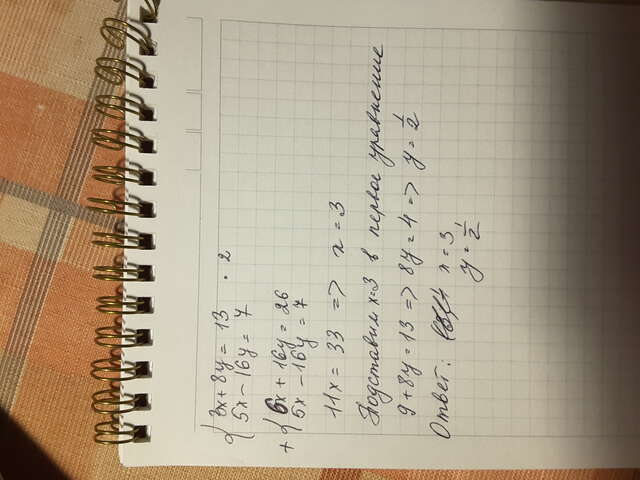 3x + 8y = 13 · 2
5x - 16y = 7
+ 6x + 16y = 26
5x - 16y = 7
11x = 33 => x = 3
Подставим x=3 в первое уравнение
9 + 8y = 13 => 8y = 4 => y = 1/2
Ответ: x = 3
y = 1/2